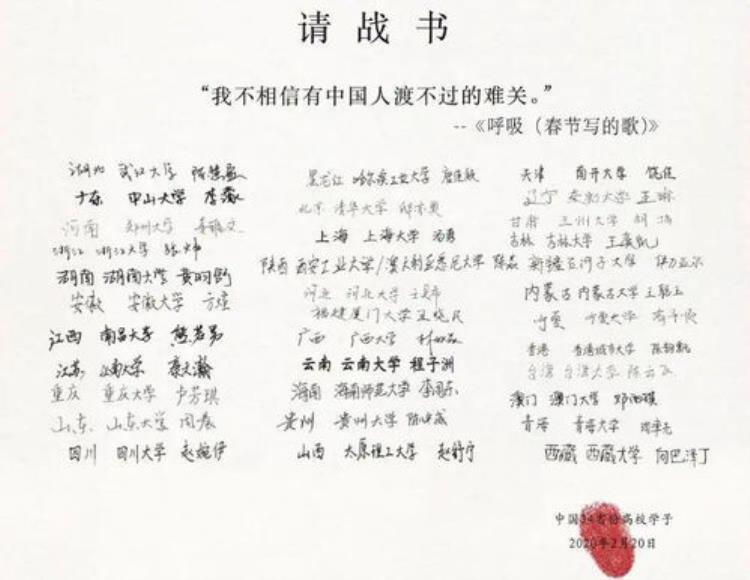 请战书
“我不相信有中国人渡不过的难关。”
--《呼吸（春节写的歌）》
湖北 武汉大学
广东 中山大学 李薇
河南 郑州大学
浙江 浙江大学 张炜
湖南 湖南大学 黄明
安徽 安徽大学 方煊
江西 南昌大学 熊若男
江苏 东南大学
重庆 重庆大学 卢芳琪
山东 山东大学 周
四川 四川大学 赵婉伊
黑龙江 哈尔滨工业大学 唐佳
北京 清华大学
上海 上海大学
陕西 西安工业大学/澳大利亚悉尼大学 陈磊
河北 河北大学
福建 厦门大学 王晓民
广西 广西大学
云南 云南大学 程子洲
海南 海南师范大学 李国东
贵州 贵州大学 陈
山西 太原理工大学 赵舒宁
天津 南开大学 饶佳
辽宁 大学 王琳
甘肃 兰州大学 胡
吉林 吉林大学 王
新疆 石河子大学 伊力亚尔
内蒙古 内蒙古大学 王
宁夏 宁夏大学
香港 香港城市大学 陈
台湾 台湾大学 陈云飞
澳门 澳门大学 邓雨琪
青海 青海大学
西藏 西藏大学 向巴泽丁
中国34省份高校学子
2020年2月20日